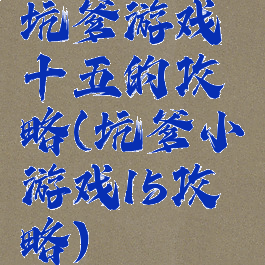 坑爹游戏
十五的攻
略(坑爹小
游戏15攻
略)